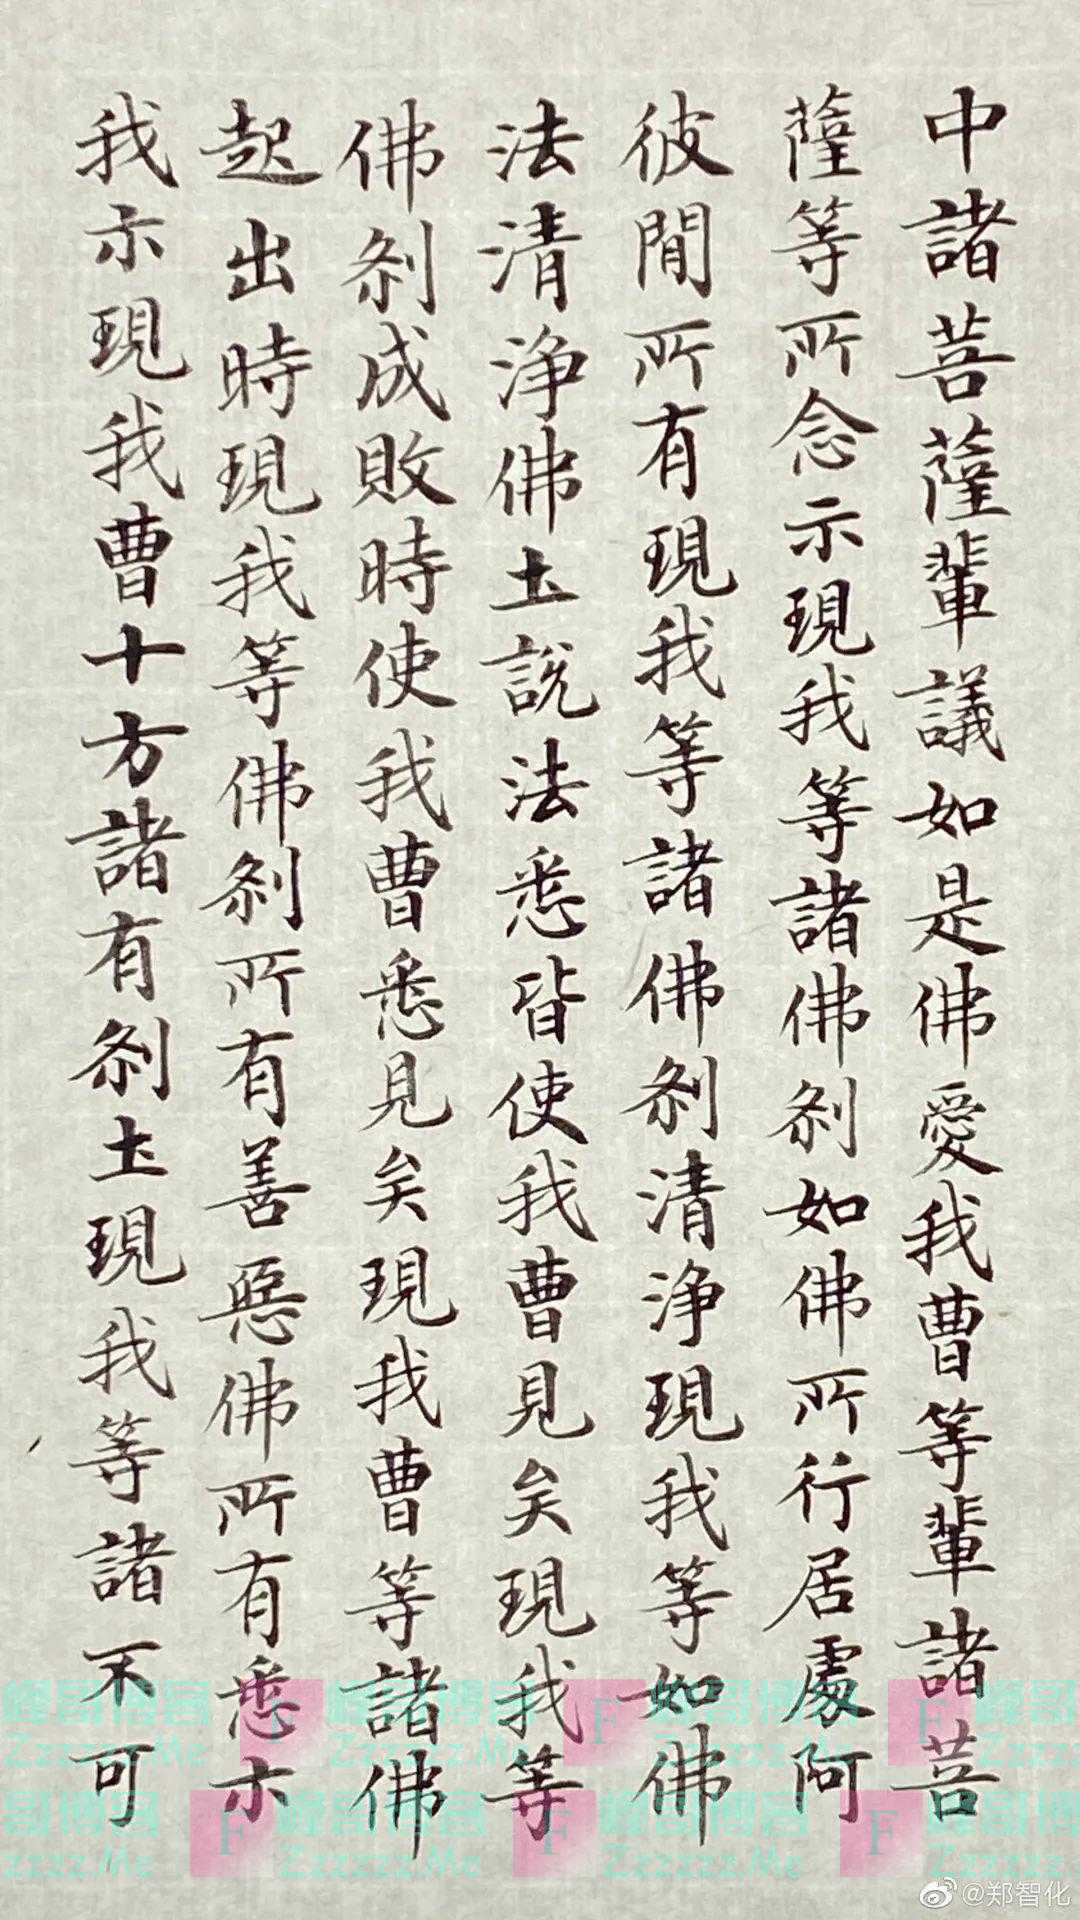 中諸菩薩輩議如是佛愛我曹等輩諸菩
薩等所念示現我等諸佛刹如佛所行居處阿
彼間所有現我等諸佛刹清淨現我等如佛
法清淨佛土說法悉皆使我曹見矣現我等
佛刹成敗時使我曹悉見矣現我曹等諸佛
起出時現我等佛刹所有善惡佛所有悉示
我示現我曹十方諸有刹土現我等諸不可
@郑智化
Zzzzzz.Me
Zzzzzz.Me
Zzzzzz.Me
zzzz.Me
Zzzzzz.Me
Zzzzzz.Me
F
F
F
F
F
F